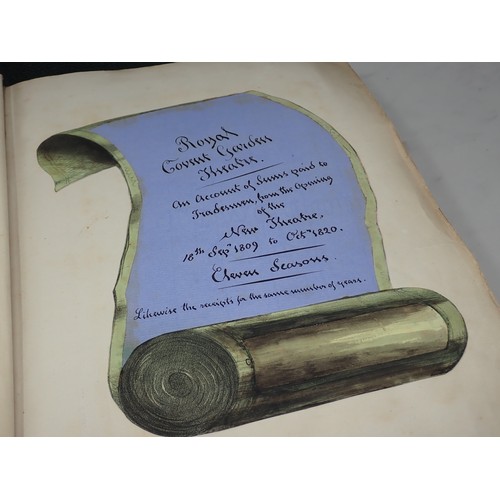 Royal
Covent Garden
Theatre.
An Account of Sums paid to
Tradesmen, from the Opening
of the
New Theatre,
18th Sepr 1809 to Octr 1820.
Eleven Seasons.
Likewise the receipts for the same number of years.